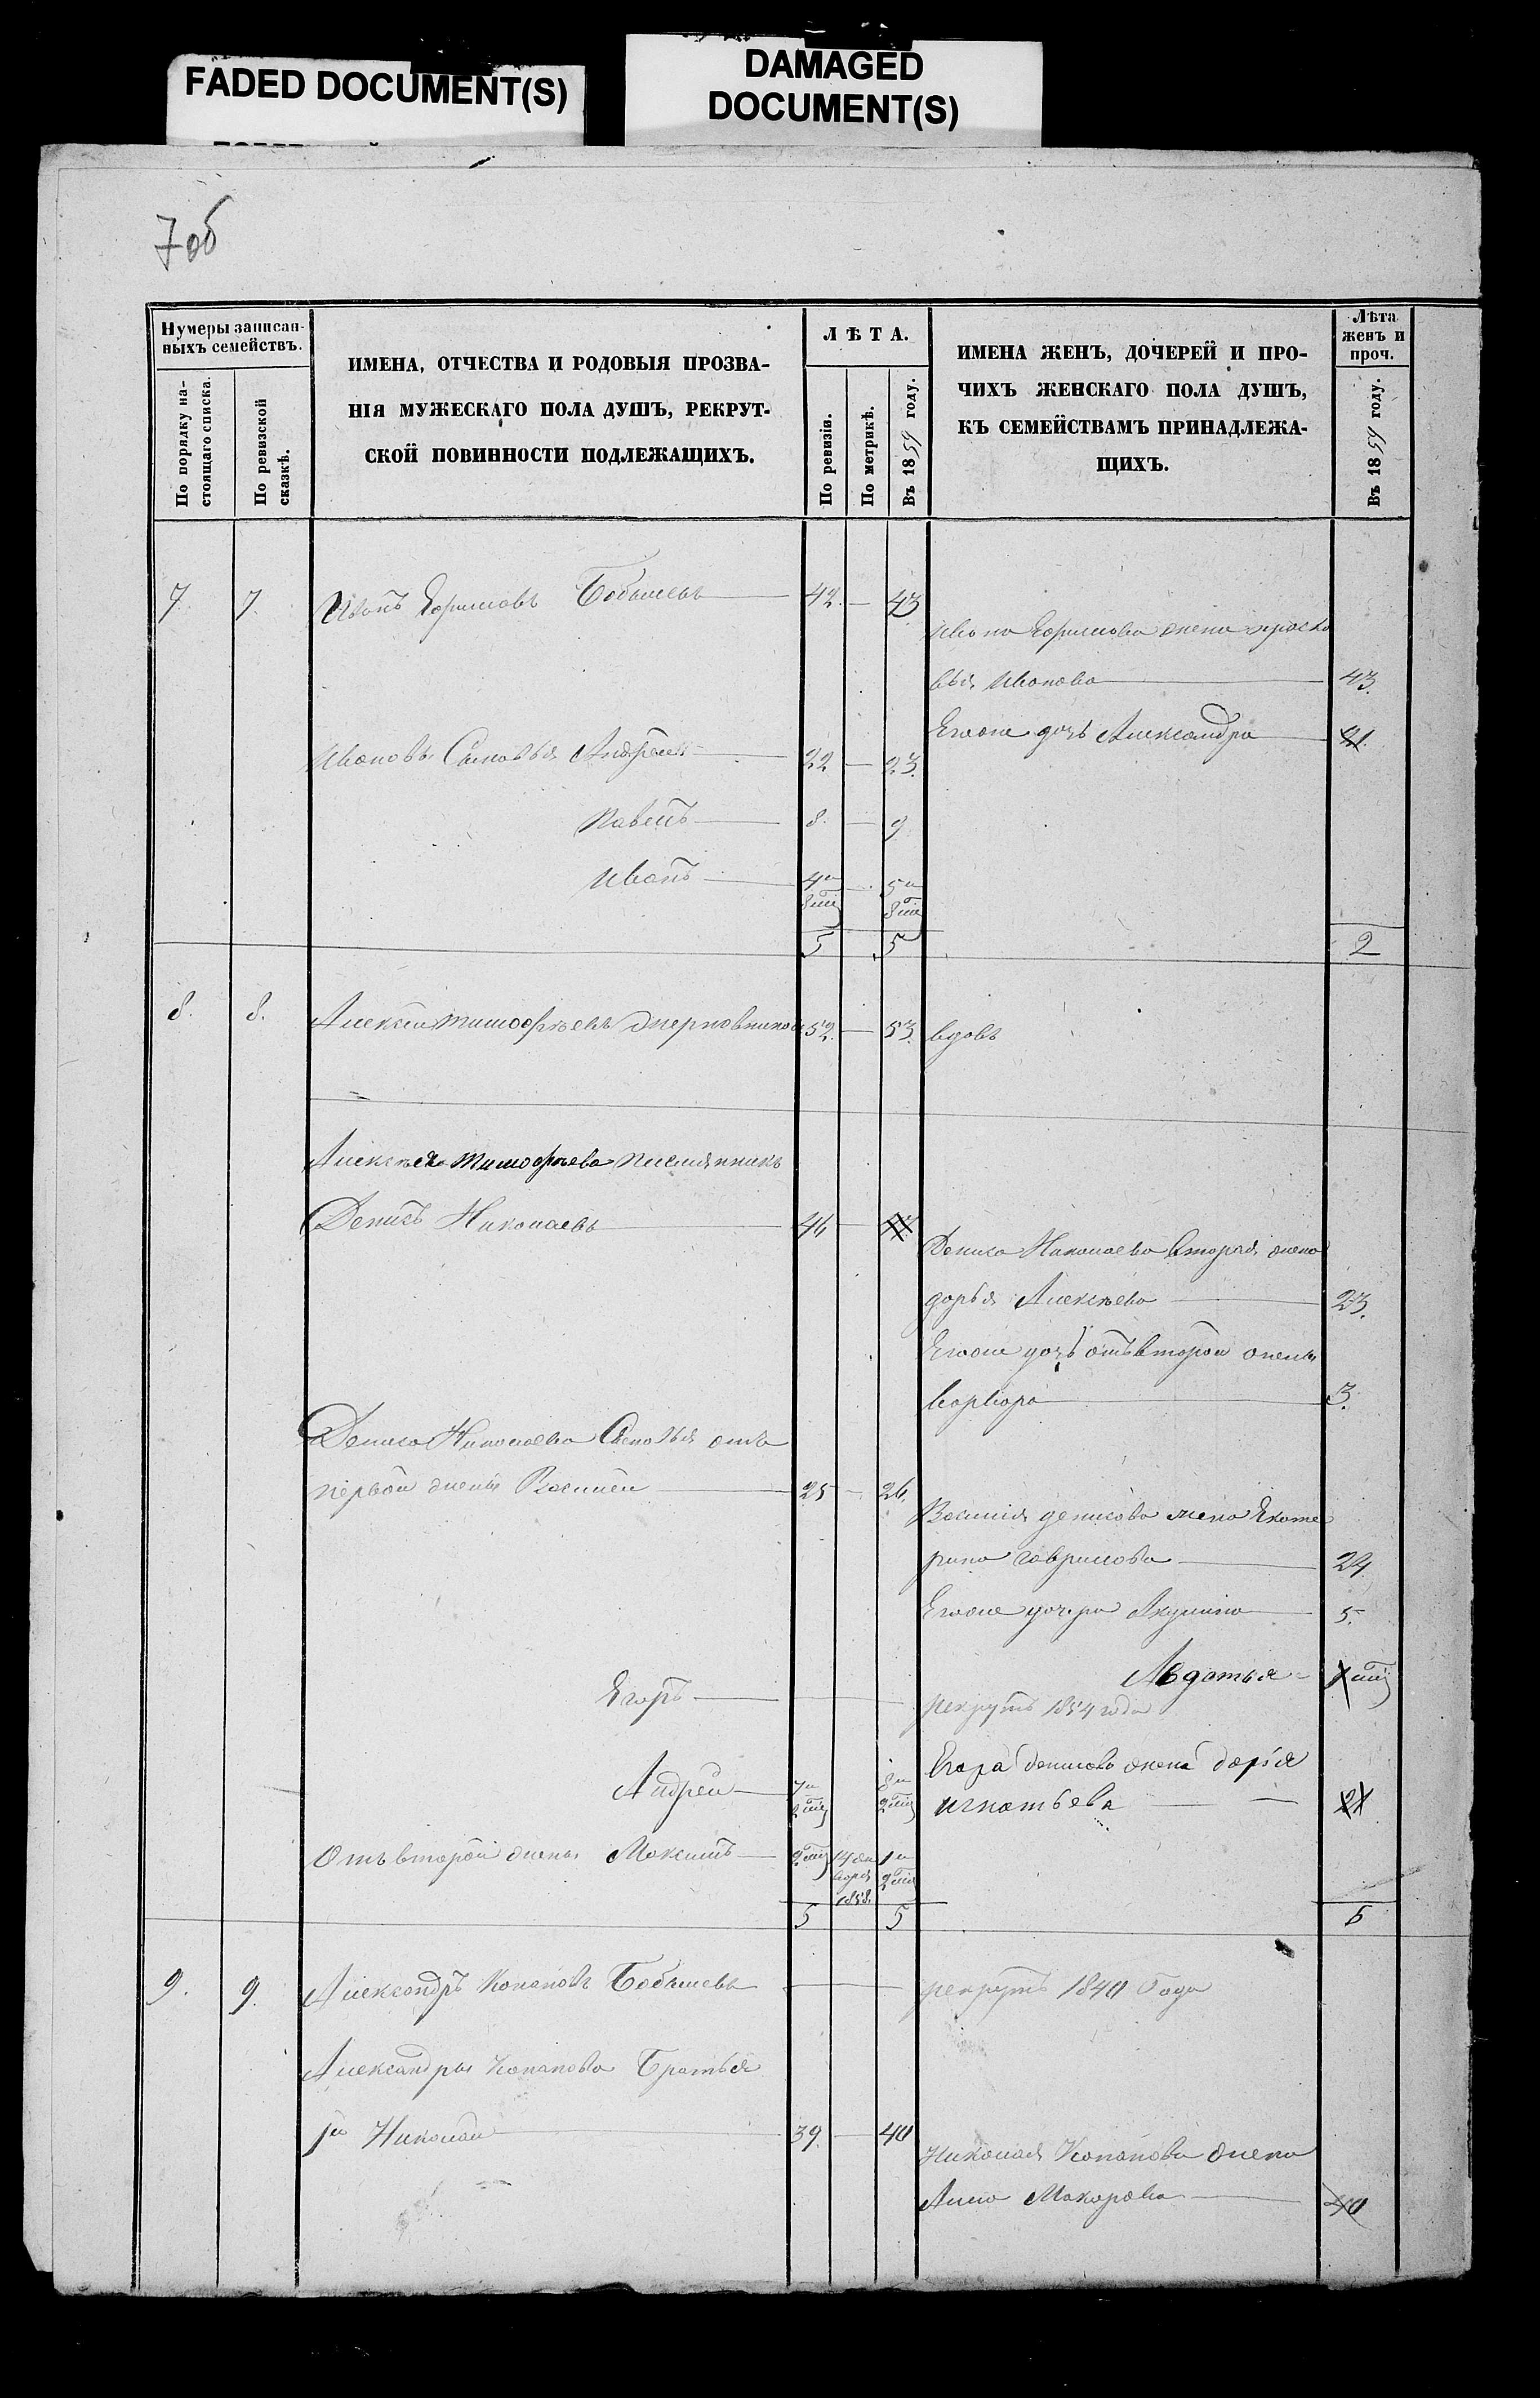 FADED DOCUMENT(S)
DAMAGED
DOCUMENT(S)
7 об
Нумеры записан-
ныхъ семействъ.
По порядку на-
стоящаго списка.
По ревизской
сказкѣ.
ИМЕНА, ОТЧЕСТВА И РОДОВЫЯ ПРОЗВА-
НІЯ МУЖЕСКАГО ПОЛА ДУШЪ, РЕКРУТ-
СКОЙ ПОВИННОСТИ ПОДЛЕЖАЩИХЪ.
ЛѢТА.
По ревизіи.
По метрикѣ.
Въ 1859 году.
ИМЕНА ЖЕНЪ, ДОЧЕРЕЙ И ПРО-
ЧИХЪ ЖЕНСКАГО ПОЛА ДУШЪ,
КЪ СЕМЕЙСТВАМЪ ПРИНАДЛЕЖА-
ЩИХЪ.
Лѣта
женъ и
проч.
Въ 1859 году.
7 7. Иванъ Ефимовъ Бобышевъ 42 — 43
Ивана Ефимова жена праско
вья Иванова 43.
Егоже дочь Александра 21.
Ивановы Сыновья Андрей 22 — 23.
Павелъ 8. — 9
Иванъ 4 8 5 8
5 5 2
8. 8. Алексей тимофѣевъ 52. — 53. вдовъ
Алексѣя тимофѣева племянникъ
Денисъ Николаевъ 46 — 47
Дениса Николаева вторая жена
дарья Алексѣева 23.
Егоже дочь отъ второй жены
варвара 3.
Дениса Николаева Сыновья отъ
первой жены Василей 25 — 26.
Василия денисова жена Екате
рина гаврилова 24
Егоже дочери Акулина 5.
Авдотья
Егоръ — рекрутъ 1854 года
Андрей
Егора денисова жена дарья
игнатьева 21
Отъ второй жены Максимъ 1858.
5 5 6
9. 9. Александръ Конановъ Бобышевъ — рекрутъ 1840 Года
Александры Конанова Братья
1й Николай 39. — 40
Николая Конанова жена
Анна Макарова 40